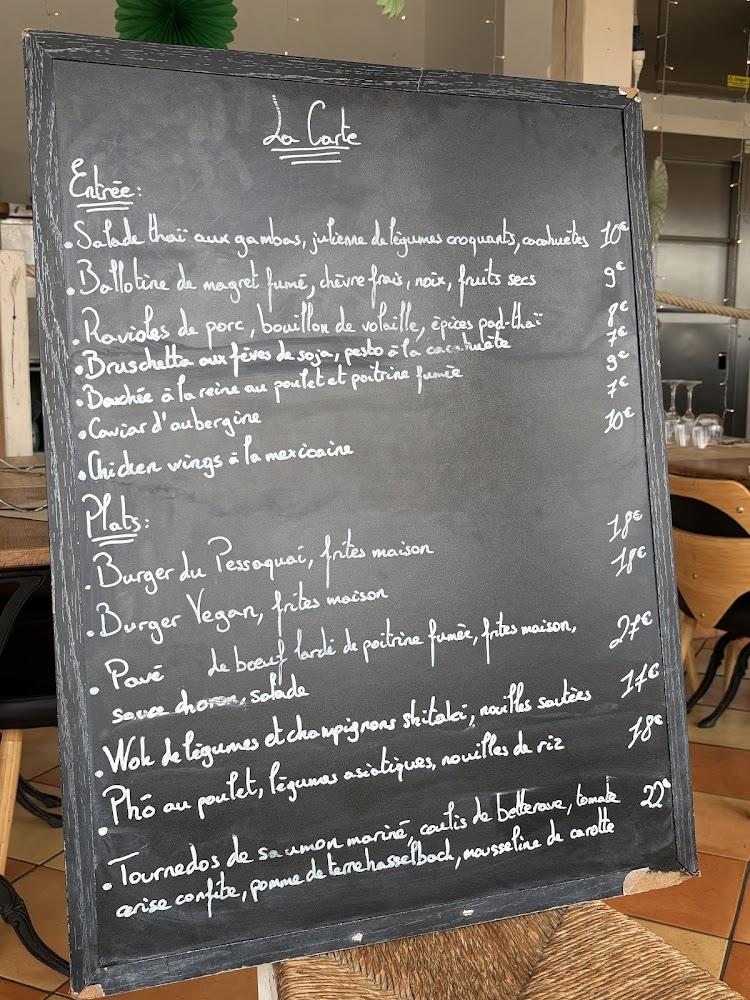 La Carte
Entrée:
• Salade thaï aux gambas, julienne de légumes croquants, cacahuètes 10€
• Ballotine de magret fumé, chèvre frais, noix, fruits secs 9€
• Ravioles de porc, bouillon de volaille, épices pad-thaï 8€
• Bruschetta aux fèves de soja, pesto à la cacahuète 7€
• Bouchée à la reine au poulet et poitrine fumée 9€
• Caviar d'aubergine 7€
• Chicken wings à la mexicaine 10€
Plats:
• Burger du Pessaquai, frites maison 18€
• Burger Vegan, frites maison 18€
• Pavé de boeuf lardé de poitrine fumée, frites maison, 27€
sauce choron, salade
• Wok de légumes et champignons shitaké, nouilles sautées 17€
• Phô au poulet, légumes asiatiques, nouilles de riz 18€
• Tournedos de saumon mariné, coulis de betterave, tomate 22€
cerise confite, pomme de terre hasselback, mousseline de carotte